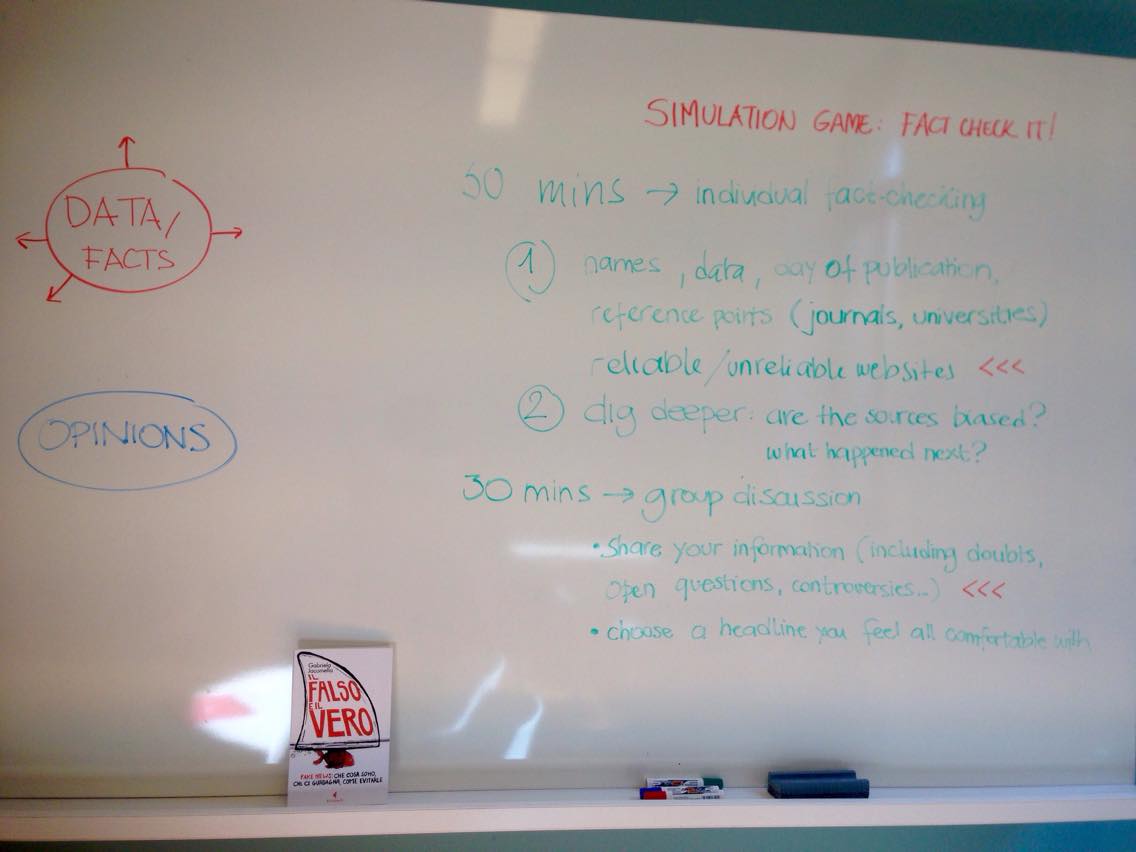 SIMULATION GAME: FACT CHECK IT!
DATA/
FACTS
OPINIONS
30 mins → individual fact-checking
① names, data, day of publication,
reference points (journals, universities)
reliable/unreliable websites <<<
② dig deeper: are the sources biased?
what happened next?
30 mins → group discussion
• Share your information (including doubts,
open questions, controversies...) <<<
• choose a headline you feel all comfortable with
Gabriela
Jacomella
IL
FALSO
E IL
VERO
FAKE NEWS: CHE COSA SONO,
CHI CI GUADAGNA, COME EVITARLE